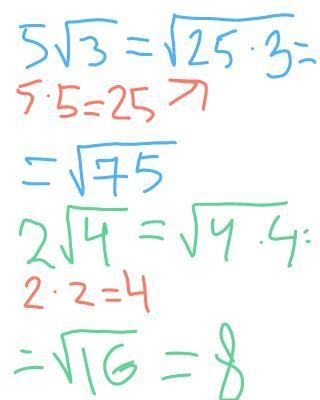 5√3 = √25·3 =
5·5=25
= √75
2√4 = √4·4 =
2·2=4
= √16 = 8